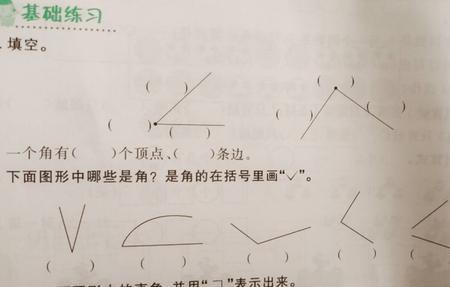 基础练习
.填空。
( )
( )
( )
( )
( )
( )
一个角有( )个顶点、( )条边。
下面图形中哪些是角？是角的在括号里画“✓”。
( ) ( ) ( ) ( ) (
并用“¬”表示出来。